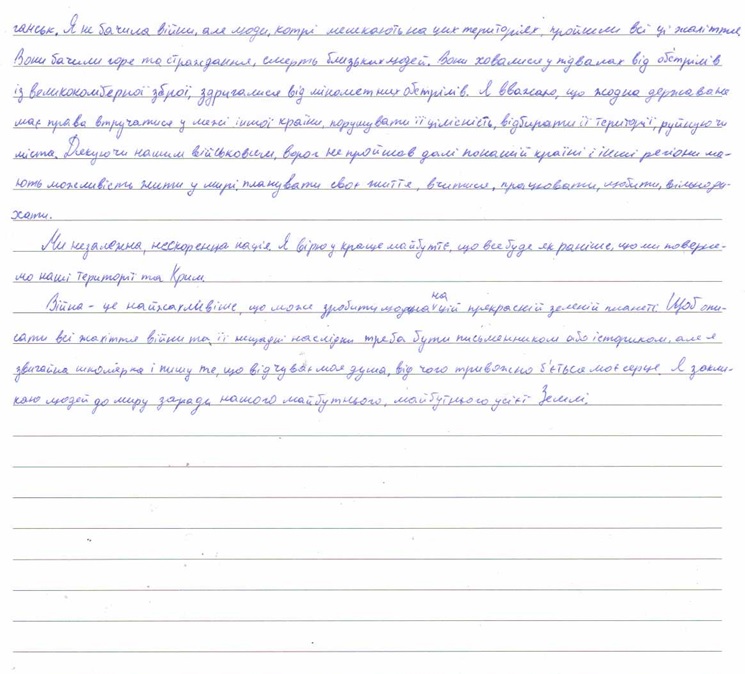 ганськ. Я не бачила війни, але люди, котрі мешкають на цих територіях, пройшли всі ці жахіття.
Вони бачили горе та страждання, смерть близьких людей. Вони ховалися у підвалах від обстрілів
із великокаліберної зброї, здригалися від мінометних обстрілів. Я вважаю, що жодна держава не
має права втручатися у межі іншої країни, порушувати її цілісність, відбирати її території, руйнуючи
міста. Дякуючи нашим військовим, ворог не пройшов далі по нашій країні і інші регіони ма-
ють можливість жити у мирі, планувати своє життя, вчитися, працювати, любити, вільно ди-
хати.
Ми незалежна, нескорена нація. Я вірю у краще майбутнє, що все буде як раніше, що ми поверне-
мо наші території та Крим.
Війна - це найжахливіше, що може зробити людина на цій прекрасній зеленій планеті. Щоб опи-
сати всі жахіття війни та її нещадні наслідки треба бути письменником або істориком, але я
звичайна школярка і пишу те, що відчуває моя душа, від чого тривожно б'ється моє серце. Я закли-
каю людей до миру заради нашого майбутнього, майбутнього усієї Землі.